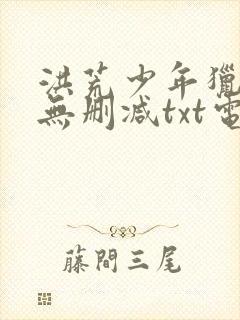 洪荒少年獵
無删减txt電
藤間三尾